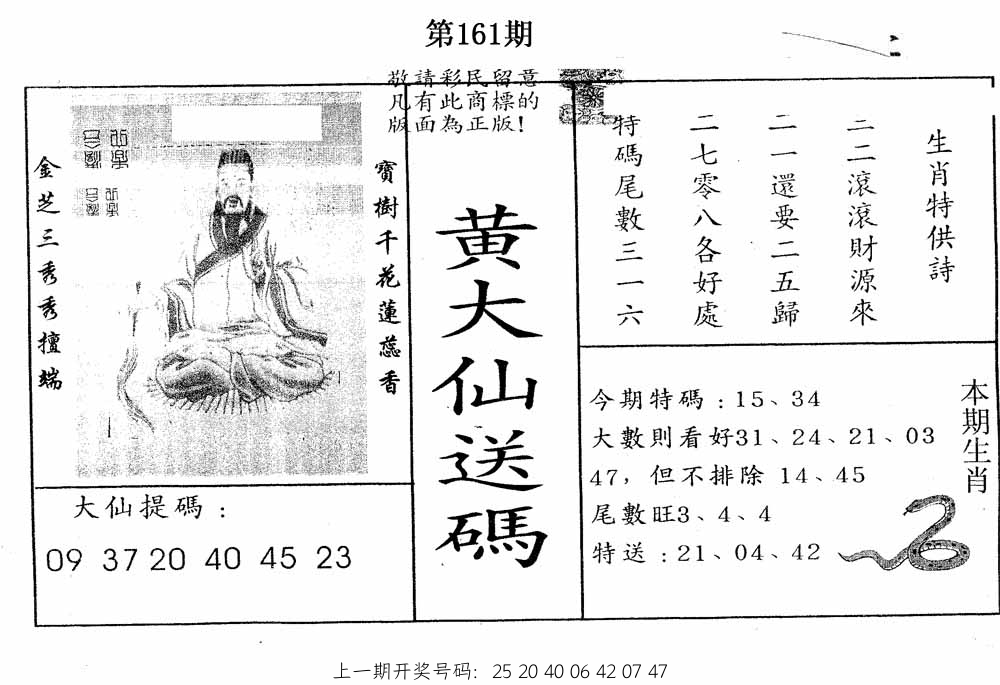 第161期
敬請彩民留意
凡有此商標的
版面為正版!
金芝三秀秀擅端
寶樹千花蓮蕊香
大仙提碼：
09 37 20 40 45 23
黃大仙送碼
生肖特供詩
二二滾滾財源來
二一還要二五歸
二七零八各好處
特碼尾數三一六
本期生肖
今期特碼：15、34
大數則看好31、24、21、03
47，但不排除 14、45
尾數旺3、4、4
特送：21、04、42
上一期开奖号码: 25 20 40 06 42 07 47